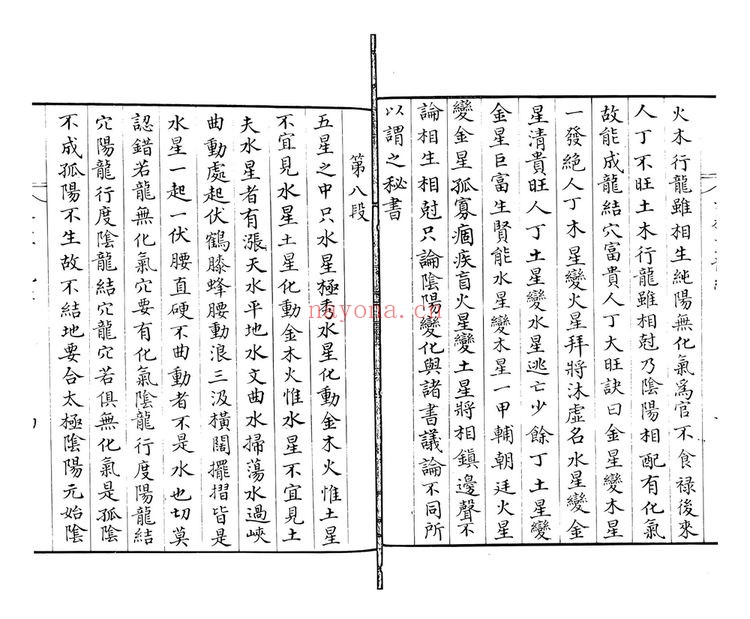 火木行龍雖相生純陽無化氣爲官不食禄後來
人丁不旺土木行龍雖相尅乃陰陽相配有化氣
故能成龍結穴富貴人丁大旺訣曰金星變木星
一發絶人丁木星變火星拜將沐虛名水星變金
星清貴旺人丁土星變水星逃亡少餘丁土星變
金星巨富生賢能水星變木星一甲輔朝廷火星
變金星孤寡痼疾盲火星變土星將相鎮邊聲不
論相生相尅只論陰陽變化與諸書議論不同所
以謂之秘書
第八段
五星之中只水星極秀水星化動金木火惟土星
不宜見水星土星化動金木火惟水星不宜見土
夫水星者有漲天水平地水文曲水掃蕩水過峽
曲動處起伏鶴膝蜂腰動浪三汲橫闊擺摺皆是
水星一起一伏腰直硬不曲動者不是水也切莫
認錯若龍無化氣穴要有化氣陰龍行度陽龍結
穴陽龍行度陰龍結穴龍穴若俱無化氣是孤陰
不成孤陽不生故不結地要合太極陰陽元始陰
nayona.cn